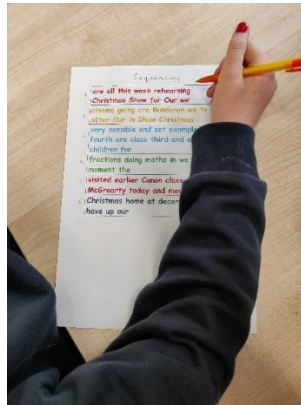 Sequencing
are all this week rehearsing
Christmas Show for Our we
cinema going are Bundoran we to
after Our in Show Christmas
very sensible and set example
fourth are class third and a
children for
fractions doing maths in we
moment the
visited earlier Canon class
McGroarty today and
Christmas home at decor
have up our